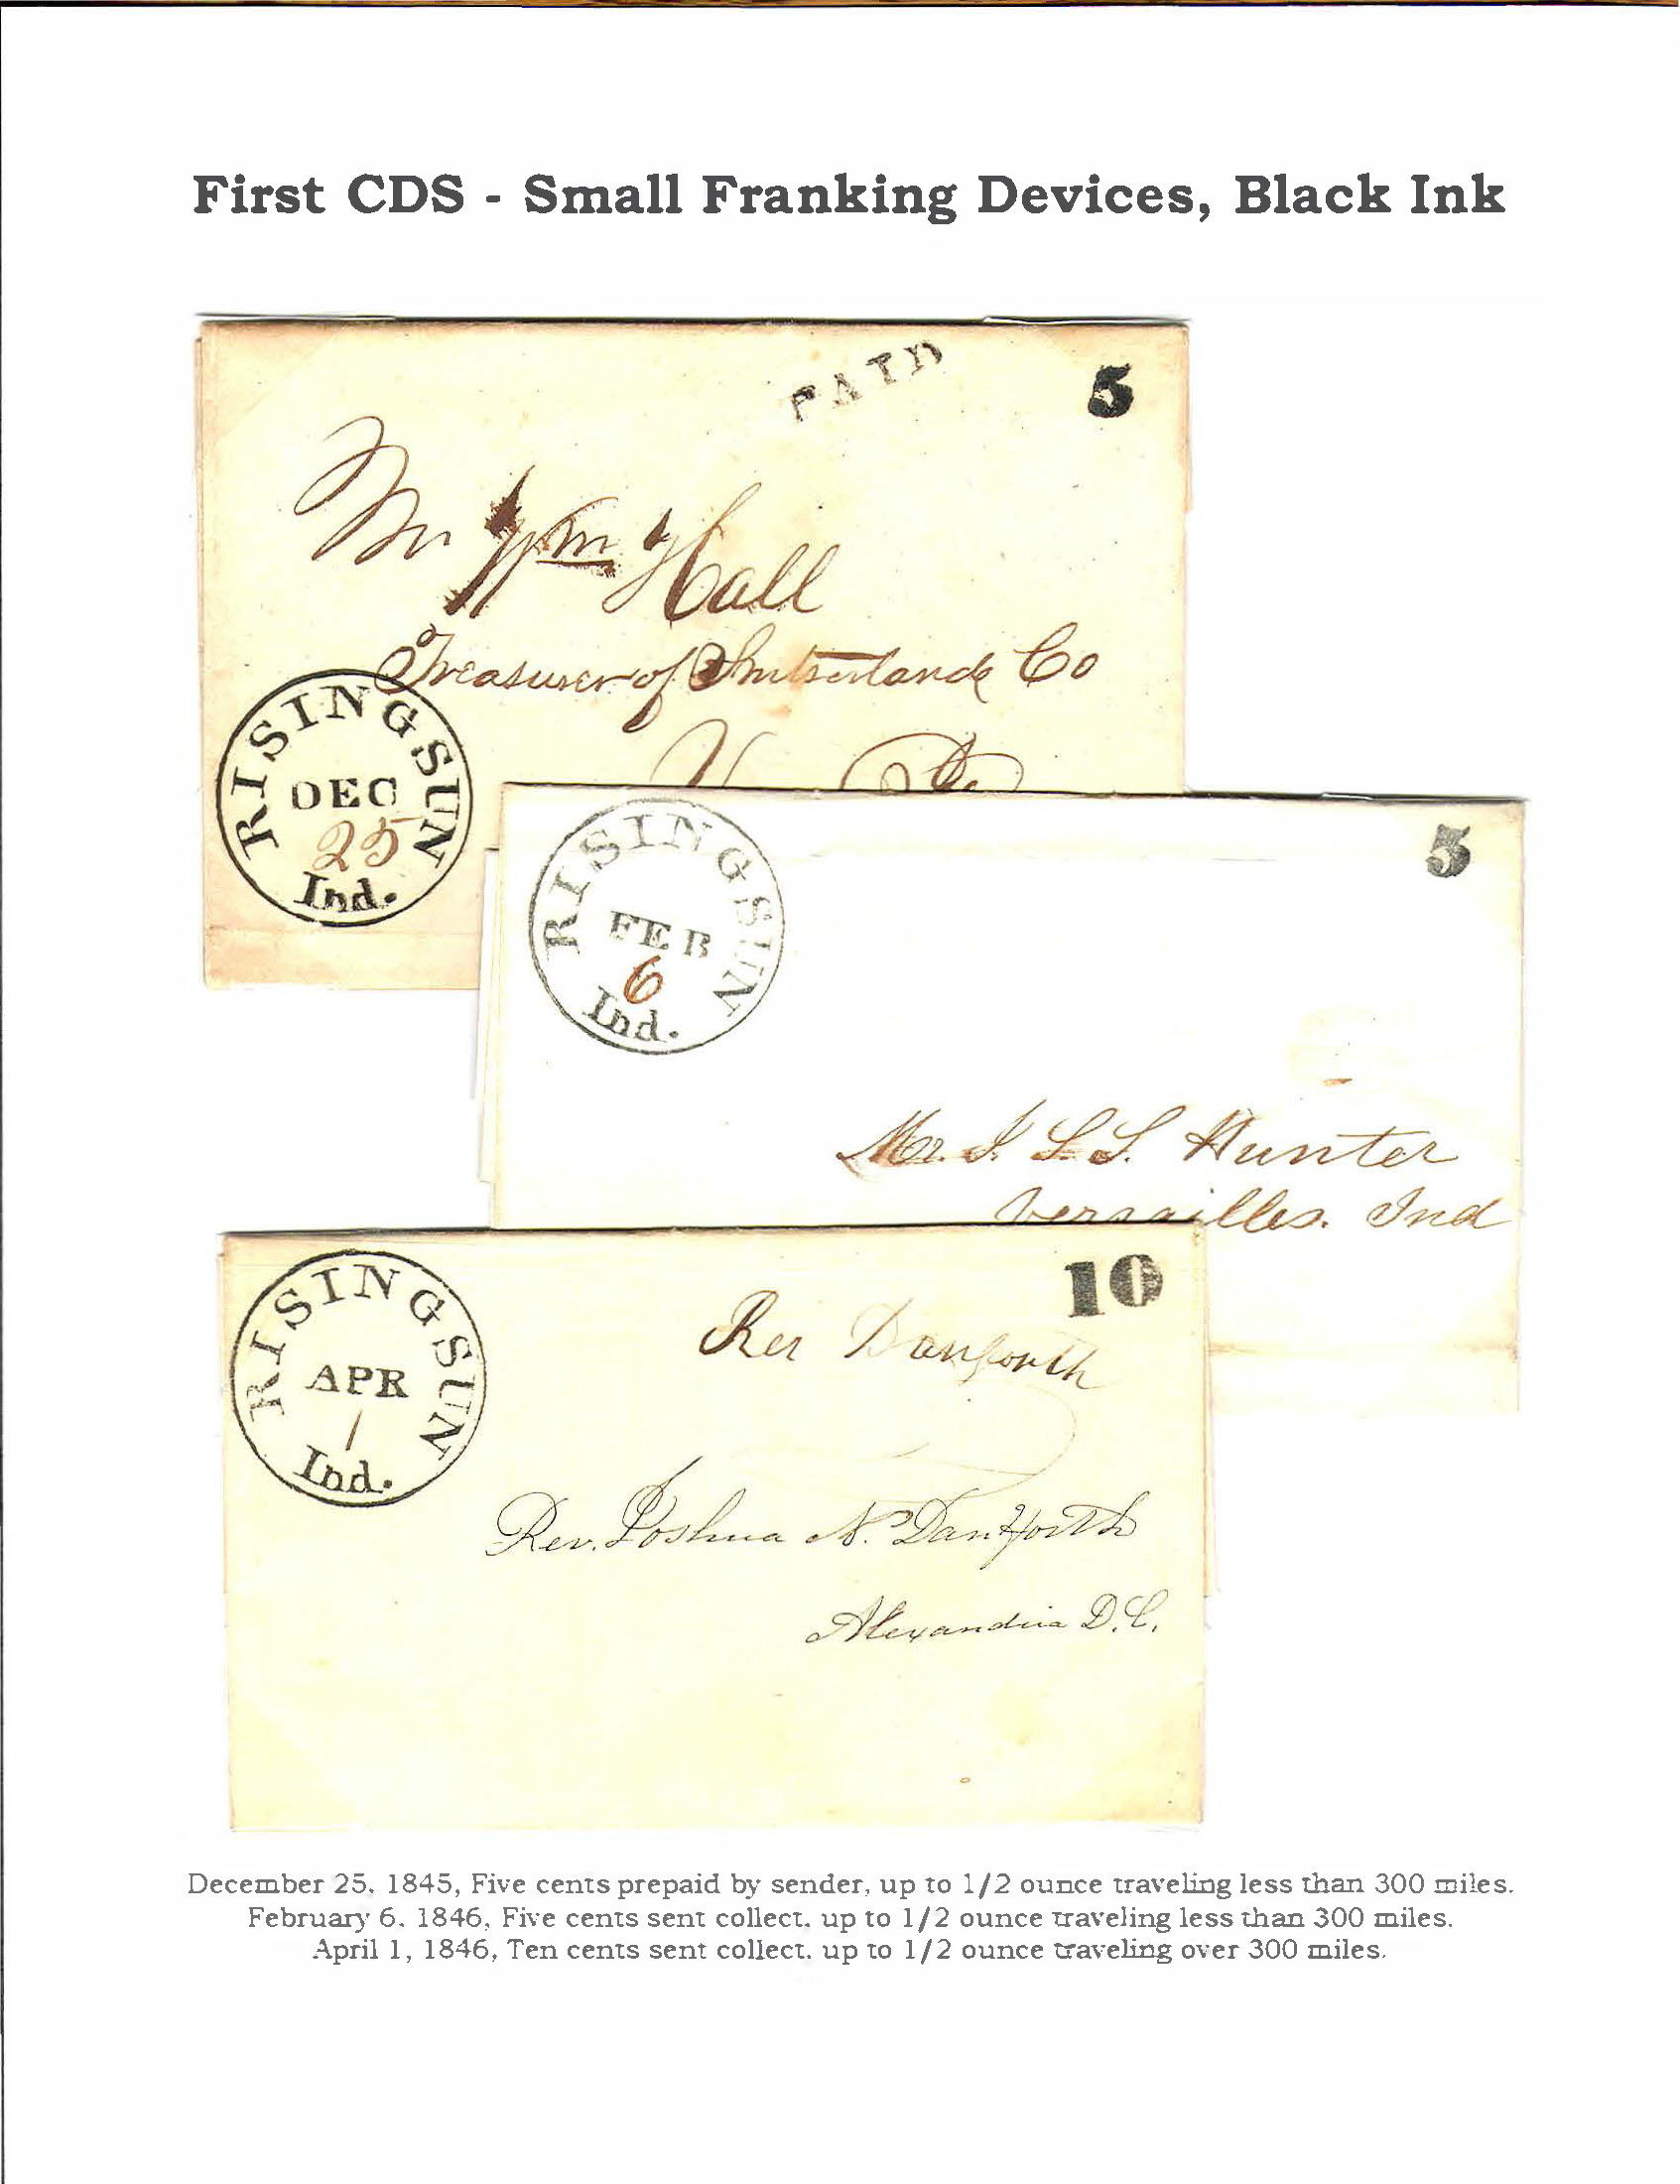 First CDS - Small Franking Devices, Black Ink
PAID
5
Mr Wm Hall
Treasurer of Switzerland Co
RISING SUN
DEC
25
Ind.
5
RISING SUN
FEB
6
Ind.
Mr. J. L. S. Hunter
Versailles. Ind
10
RISING SUN
APR
1
Ind.
Rev Danforth
Rev. Joshua N. Danforth
Alexandria D.C.
December 25, 1845, Five cents prepaid by sender, up to 1/2 ounce traveling less than 300 miles.
February 6, 1846, Five cents sent collect, up to 1/2 ounce traveling less than 300 miles.
April 1, 1846, Ten cents sent collect, up to 1/2 ounce traveling over 300 miles.